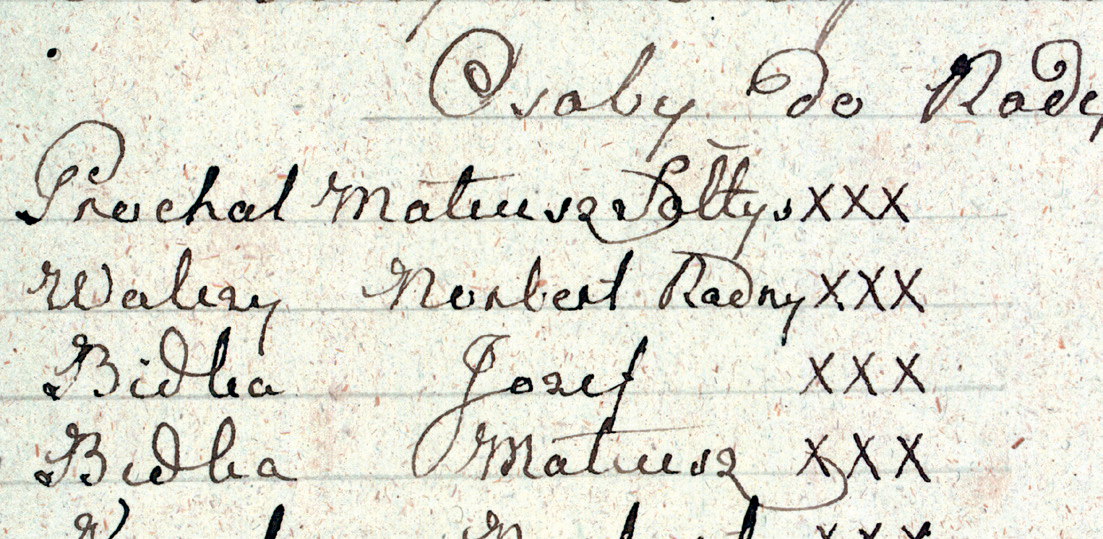 Osoby do Rady
Prochal Mateusz Sołtys XXX
Walczy Norbert Radny XXX
Bidka Jozef XXX
Bidka Mateusz XXX